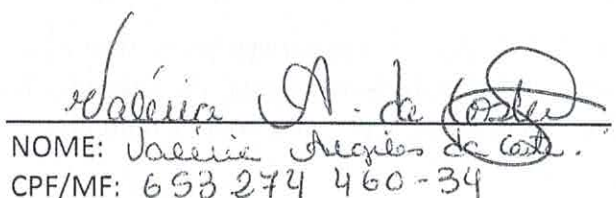 Valéria A. da Costa
NOME: Valéria da Costa.
CPF/MF: 653 274 460-34